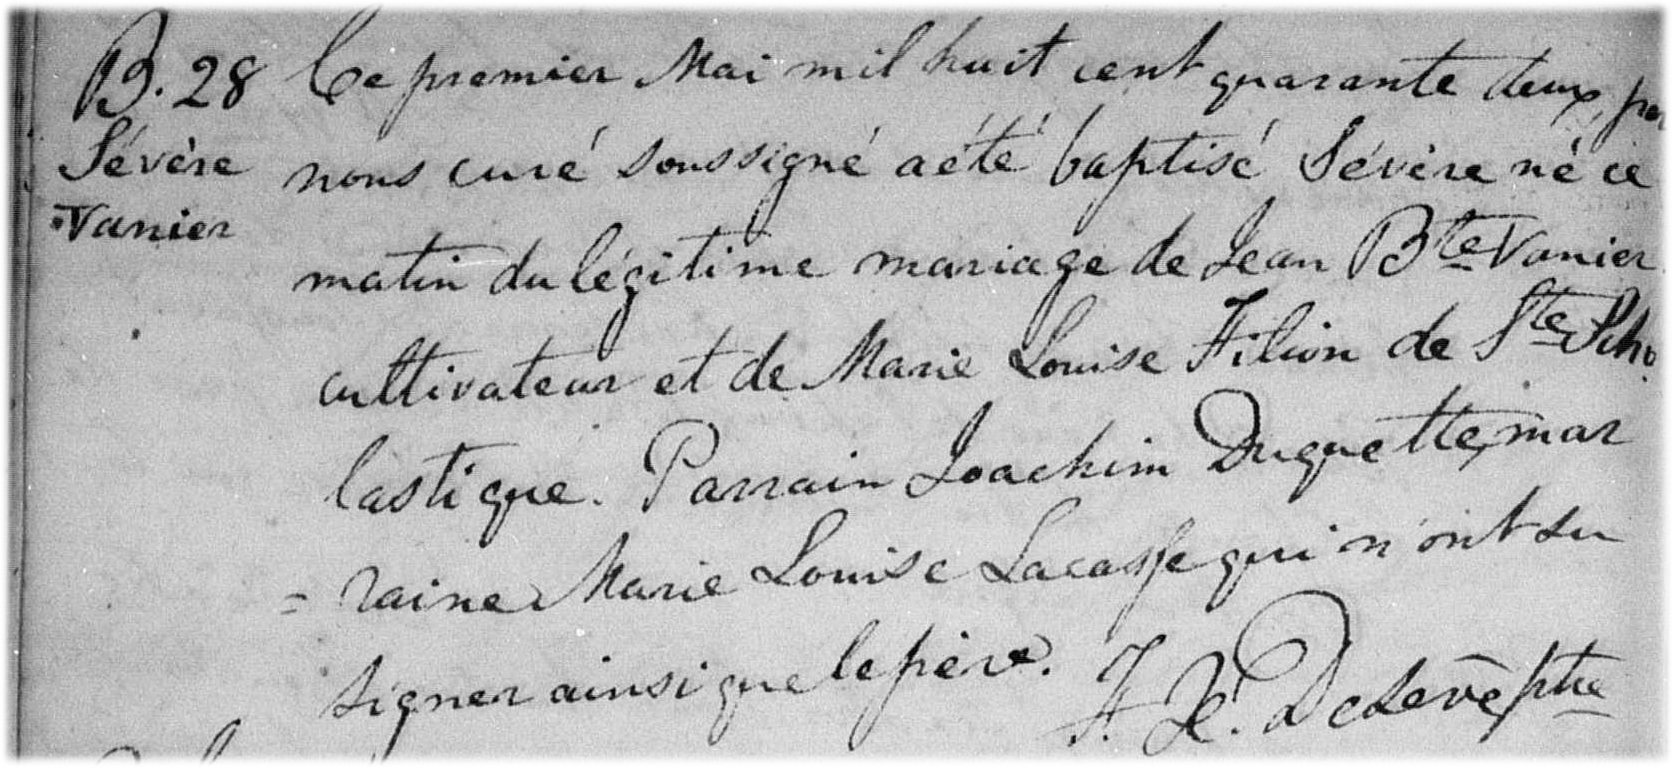 B. 28
Sévère
Vanier
Ce premier Mai mil huit cent quarante deux, par
nous curé soussigné a été baptisé Sévère né ce
matin du légitime mariage de Jean Bte Vanier
cultivateur et de Marie Louise Filion de Ste Scho
lastique. Parrain Joachim Duquette, mar
= raine Marie Louise Lacasse qui n'ont su
signer ainsi que le père.
ptre